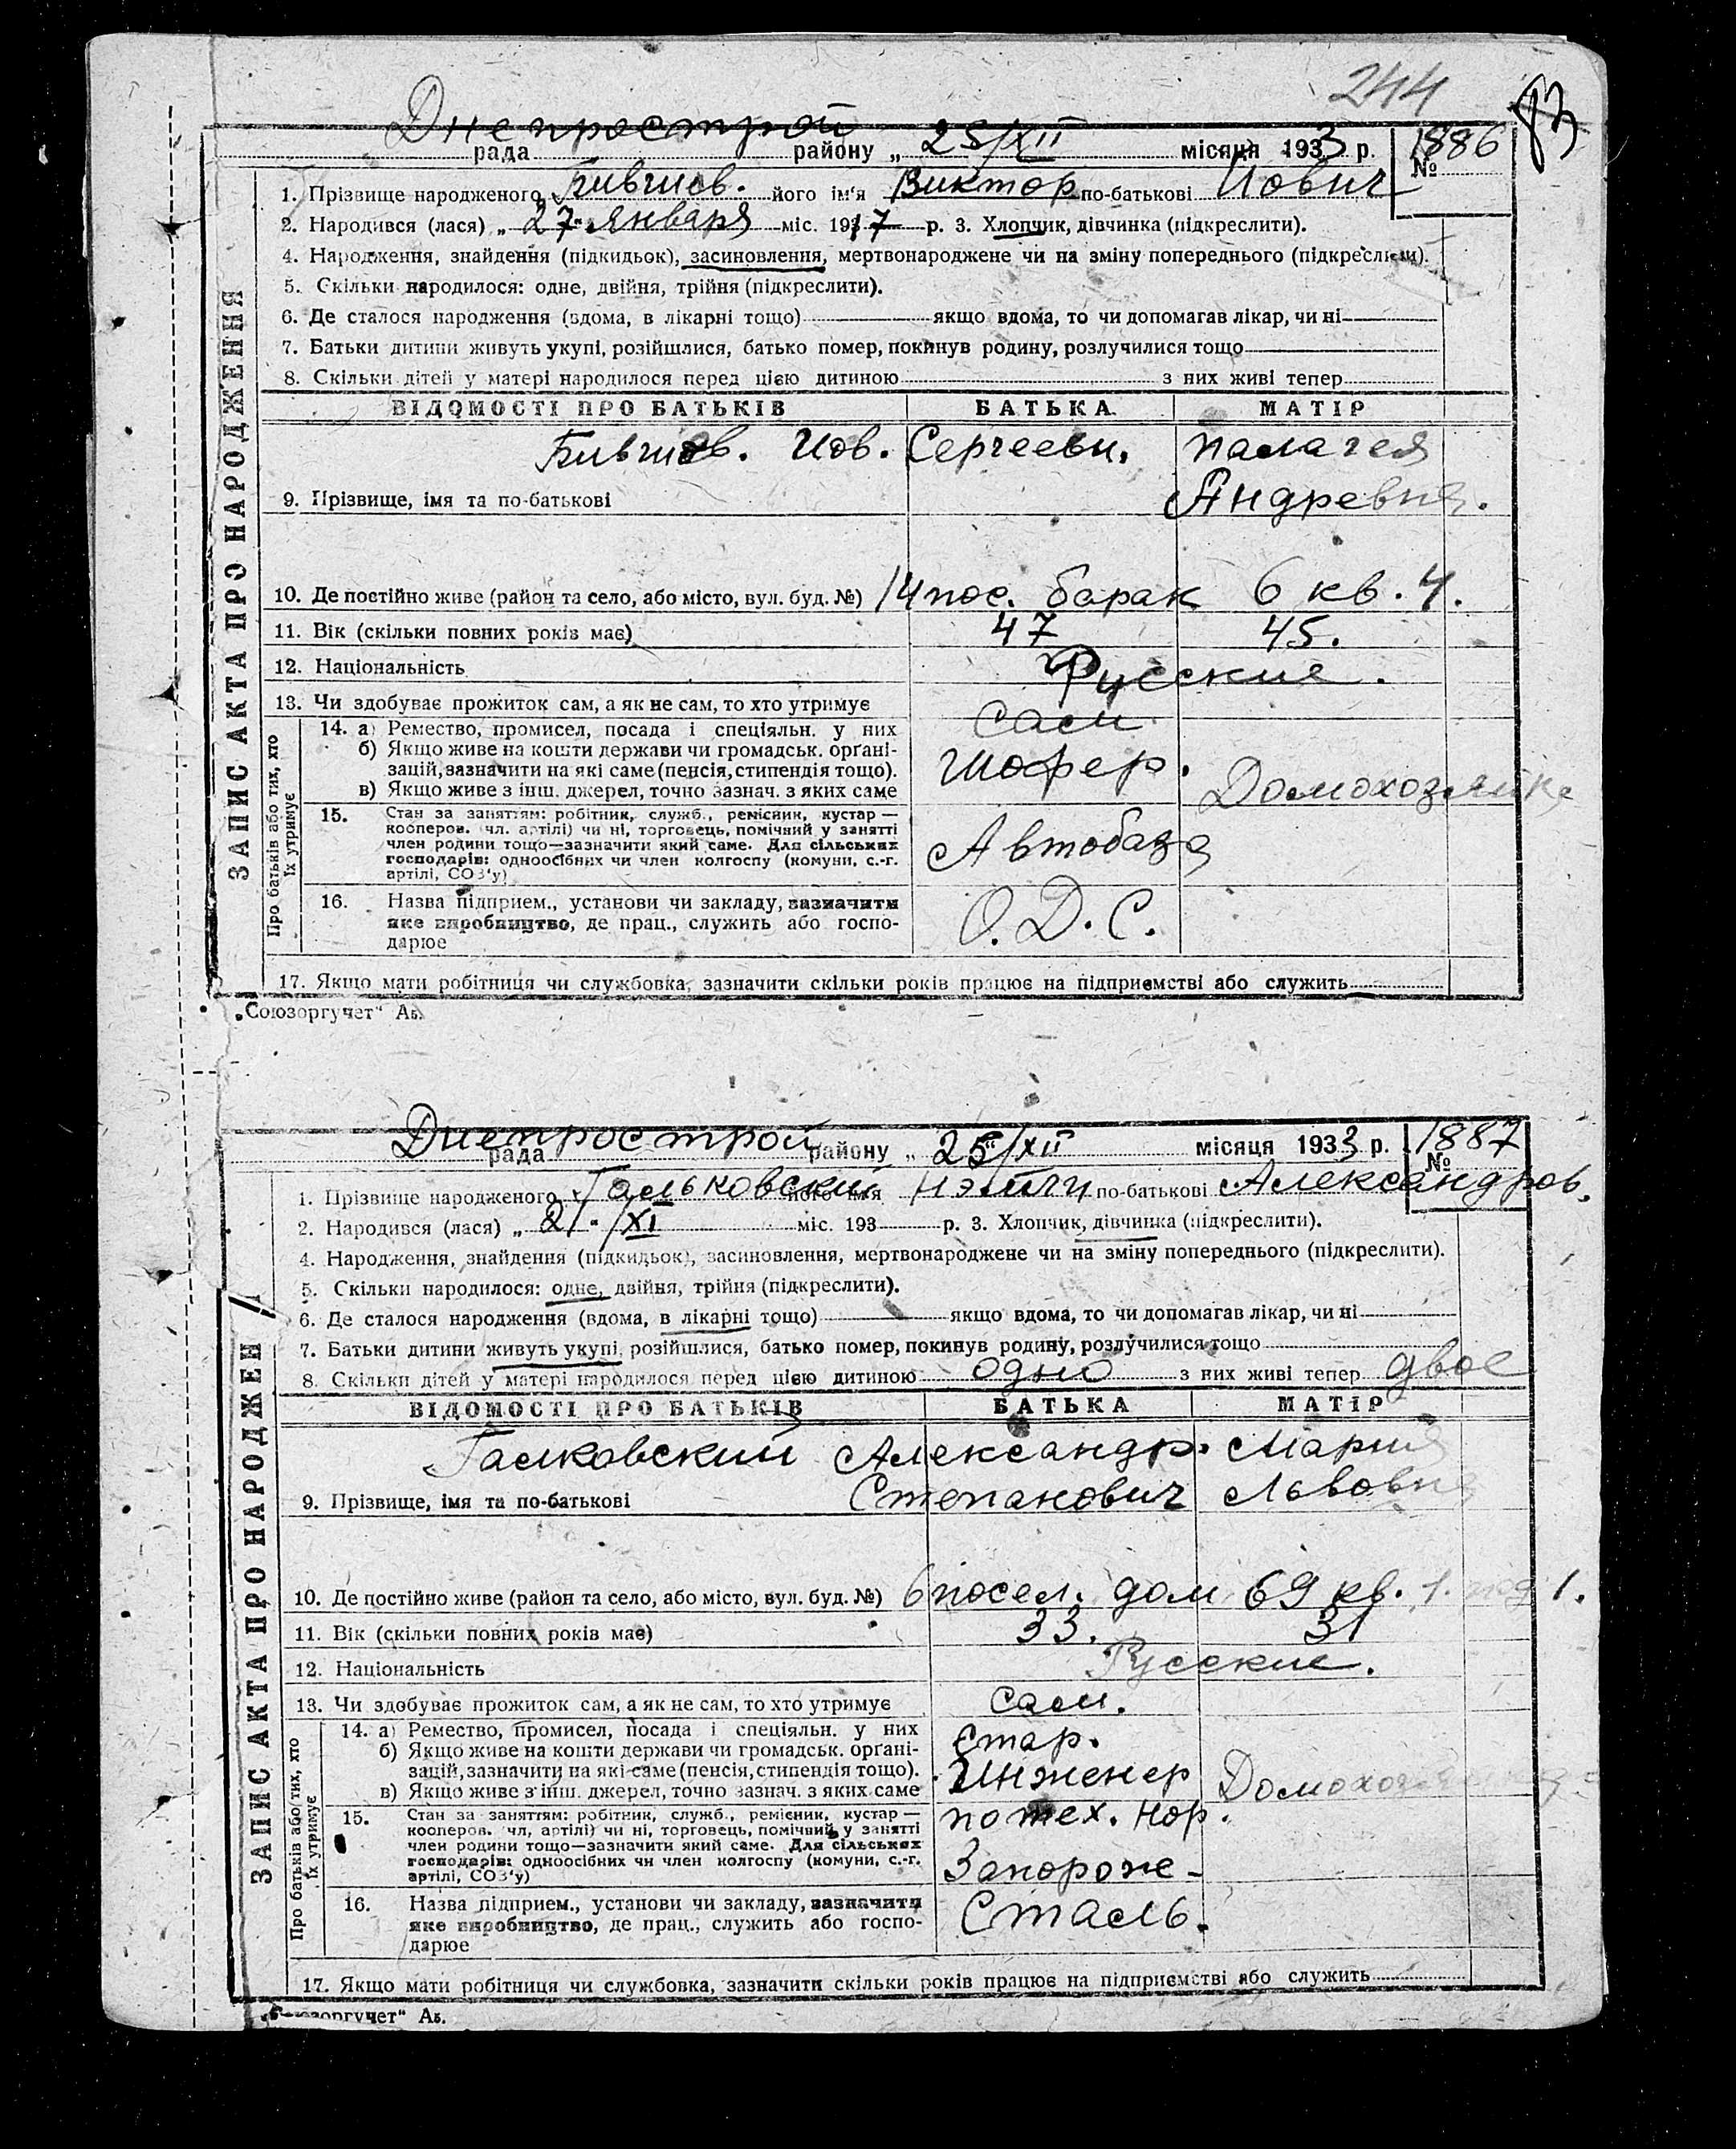 244
83
Днепрострой
рада району „ 25/XII місяця 1933 р. № 1886
1. Прізвище народженого його ім'я Виктор по-батькові Иович
2. Народився (лася) „ 27. Января міс. 1917 р. 3. Хлопчик, дівчинка (підкреслити).
4. Народження, знайдення (підкидьок), засиновлення, мертвонароджене чи на зміну попереднього (підкреслити).
5. Скільки народилося: одне, двійня, трійня (підкреслити).
6. Де сталося народження (вдома, в лікарні тощо) якщо вдома, то чи допомагав лікар, чи ні
7. Батьки дитини живуть укупі, розійшлися, батько помер, покинув родину, розлучилися тощо
8. Скільки дітей у матері народилося перед цією дитиною з них живі тепер
ЗАПИС АКТА ПРО НАРОДЖЕННЯ
ВІДОМОСТІ ПРО БАТЬКІВ БАТЬКА МАТІР
Иов. Сергееви. Палагея
9. Прізвище, імя та по-батькові Андревна.
10. Де постійно живе (район та село, або місто, вул. буд. №) 14 пос. барак 6 кв. 4.
11. Вік (скільки повних років має) 47 45.
12. Національність Русские.
13. Чи здобуває прожиток сам, а як не сам, то хто утримує Сам
Про батьків або тих, хто їх утримує
14. а) Ремество, промисел, посада і спеціяльн. у них
б) Якщо живе на кошти держави чи громадськ. органі-
зацій, зазначити на які саме (пенсія, стипендія тощо). Шофер.
в) Якщо живе з інш. джерел, точно зазнач. з яких саме Домохозяйка
15. Стан за заняттям: робітник, служб., ремісник, кустар —
кооперов. чл. артілі) чи ні, торговець, помічний у занятті
член родини тощо—зазначити який саме. Для сільських
господарів: одноосібних чи член колгоспу (комуни, с.-г.
артілі, СОЗ'у) Автобаза
16. Назва підприєм., установи чи закладу, зазначити
яке виробництво, де прац., служить або госпо-
дарює О. Д. С.
17. Якщо мати робітниця чи службовка, зазначити скільки років працює на підприємстві або служить
„Союзоргучет“ Аз.
Днепрострой
рада району „ 25/XII місяця 1933 р. № 1887
1. Прізвище народженого Гальковский його імя Нэлли по-батькові Александров.
2. Народився (лася) „ 21. /XI міс. 193 р. 3. Хлопчик, дівчинка (підкреслити).
4. Народження, знайдення (підкидьок), засиновлення, мертвонароджене чи на зміну попереднього (підкреслити).
5. Скільки народилося: одне, двійня, трійня (підкреслити).
6. Де сталося народження (вдома, в лікарні тощо) якщо вдома, то чи допомагав лікар, чи ні
7. Батьки дитини живуть укупі, розійшлися, батько помер, покинув родину, розлучилися тощо
8. Скільки дітей у матері народилося перед цією дитиною одно з них живі тепер двое
ЗАПИС АКТА ПРО НАРОДЖЕН
ВІДОМОСТІ ПРО БАТЬКІВ БАТЬКА МАТІР
Галковский Александр. Мария
9. Прізвище, імя та по-батькові Степанович Львовна
10. Де постійно живе (район та село, або місто, вул. буд. №) 6 посел. дом 69 кв. 1. под 1.
11. Вік (скільки повних років має) 33. 31
12. Національність Русские.
13. Чи здобуває прожиток сам, а як не сам, то хто утримує Сам.
Про батьків або тих, хто їх утримує
14. а) Ремество, промисел, посада і спеціяльн. у них Стар.
б) Якщо живе на кошти держави чи громадськ. органі-
зацій, зазначити на які саме (пенсія, стипендія тощо). Инженер
в) Якщо живе з інш. джерел, точно зазнач. з яких саме Домохозяйка
15. Стан за заняттям: робітник, служб., ремісник, кустар — по тех. нор.
кооперов. чл. артілі) чи ні, торговець, помічний у занятті
член родини тощо—зазначити який саме. Для сільських
господарів: одноосібних чи член колгоспу (комуни, с.-г.
артілі, СОЗ'у) Запороже-
16. Назва підприєм., установи чи закладу, зазначити
яке виробництво, де прац., служить або госпо-
дарює Сталь.
17. Якщо мати робітниця чи службовка, зазначити скільки років працює на підприємстві або служить
„Союзоргучет“ Аз.